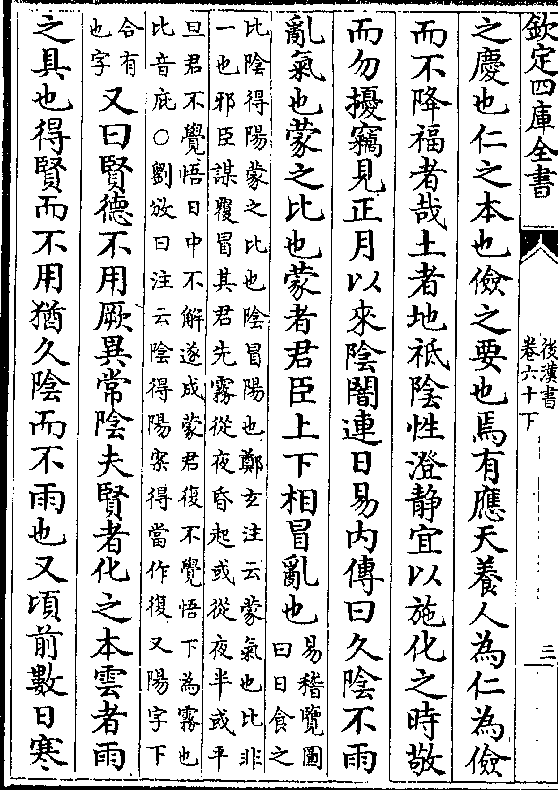 欽定四庫全書
後漢書
卷六十下
三
之慶也仁之本也儉之要也焉有應天養人為仁為儉
而不降福者哉土者地祇陰性澄静宜以施化之時敬
而勿擾竊見正月以來陰闇連日易内傳曰久陰不雨
亂氣也蒙之比也蒙者君臣上下相冒亂也
易稽覽圖
曰日食之
比陰得陽蒙之比也陰冒陽也鄭玄注云蒙氣也比非
一也邪臣謀覆冒其君先霧從夜昏起或從夜半或平
旦君不覺悟日中不解遂成蒙君復不覺悟下為霧也
比音庇○劉放曰注云陰得陽案得當作復又陽字下
合有
也字
又曰賢德不用厥異常陰夫賢者化之本雲者雨
之具也得賢而不用猶久陰而不雨也又頃前數日寒